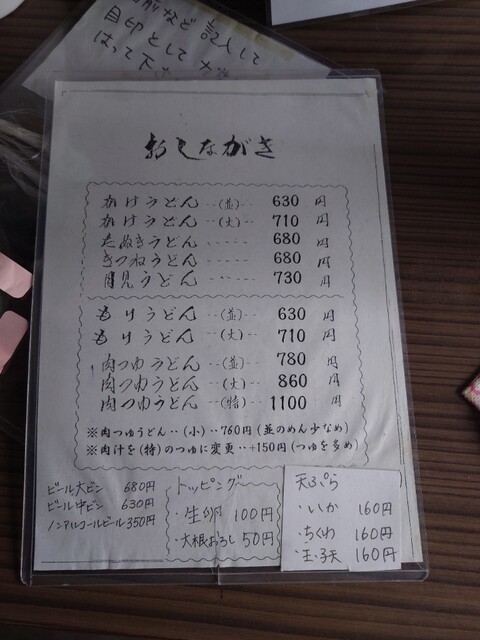 など記入して
目印として
はって下
おしながき
かけうどん‥(並)‥ 630 円
かけうどん‥(大)‥ 710 円
たぬきうどん ‥‥‥ 680 円
きつねうどん ‥‥‥ 680 円
月見うどん ‥‥‥ 730 円
もりうどん‥(並)‥ 630 円
もりうどん‥(大)‥ 710 円
肉つゆうどん‥(並)‥ 780 円
肉つゆうどん‥(大)‥ 860 円
肉つゆうどん‥(特)‥ 1100 円
※肉つゆうどん‥(小)‥760円(並のめん少なめ)
※肉汁を(特)のつゆに変更‥+150円(つゆを多め)
ビール大ビン 680円
ビール中ビン 630円
ノンアルコールビール 350円
トッピング
・生卵 100円
・大根おろし 50円
天ぷら
・いか 160円
・ちくわ 160円
・玉子天 160円